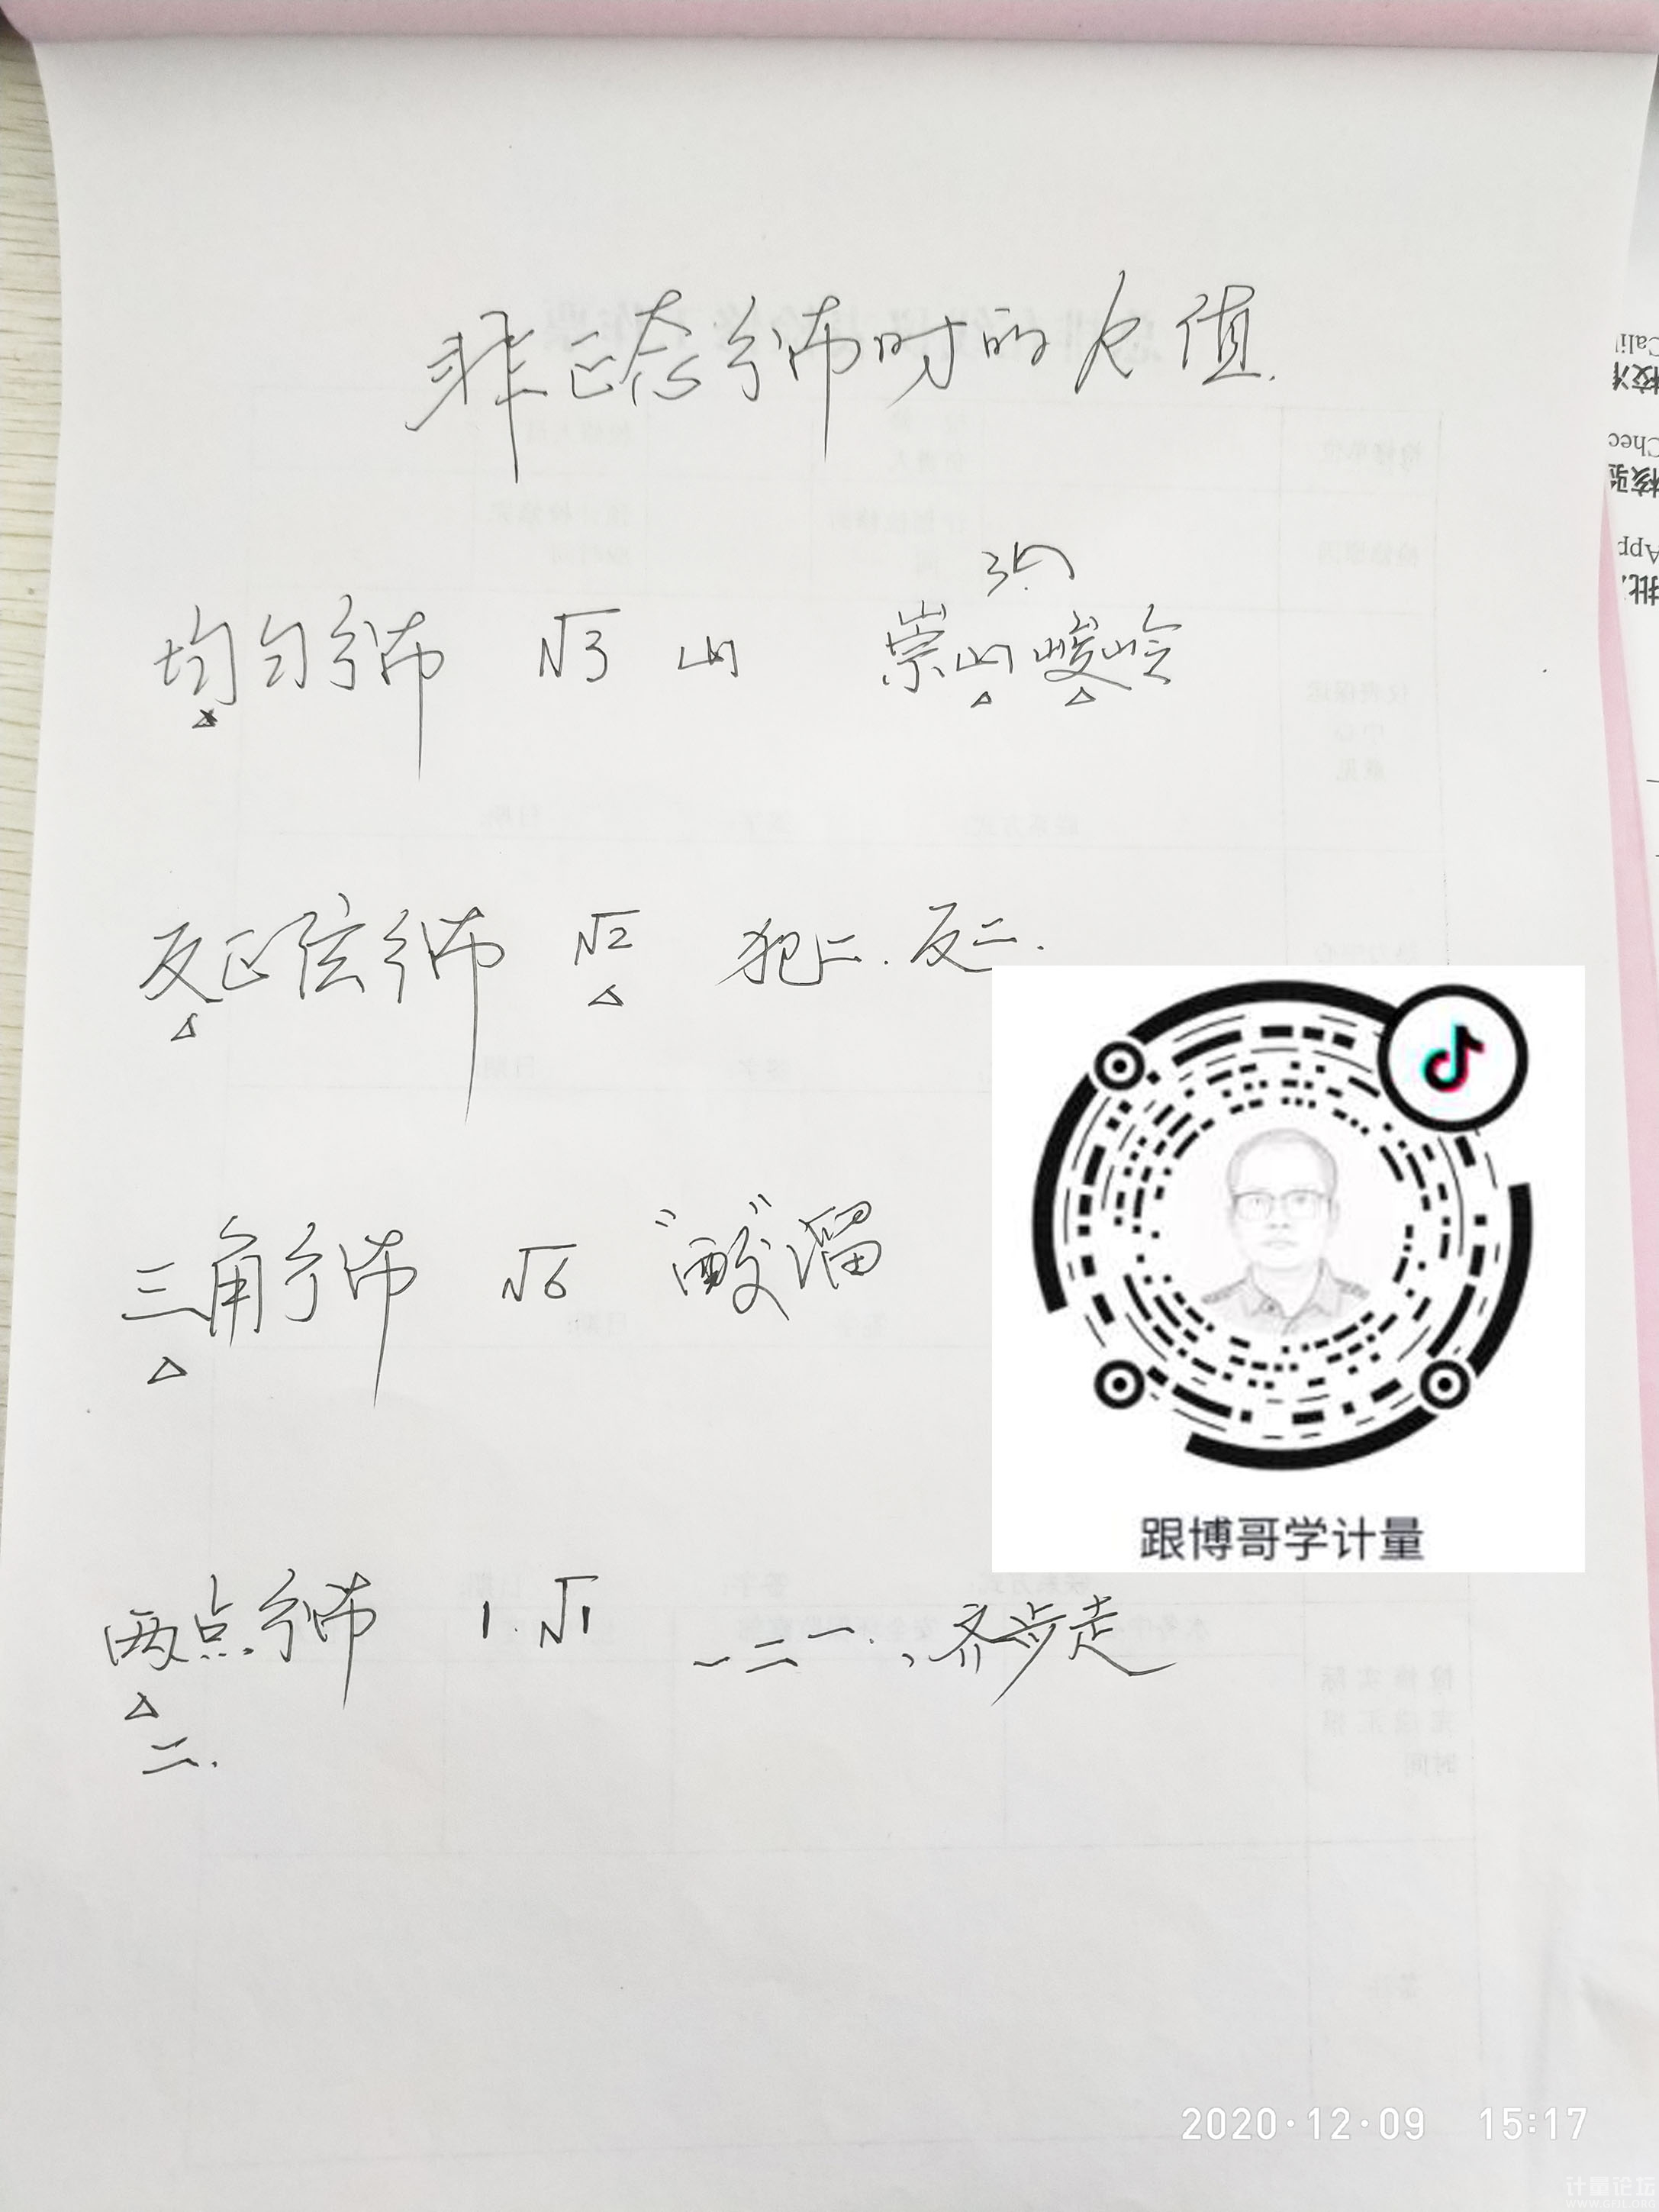 非正态分布时的k值.
均匀分布 √3 山 崇山峻岭
反正弦分布 √2 犯二.反二.
三角分布 √6 “酸”溜
跟博哥学计量
两点分布 1. √1 一二一.,齐步走
二.
Cali
校准
Chec
核验
App
批
2020·12·09 15:17
计量论坛
WWW.GFJL.ORG